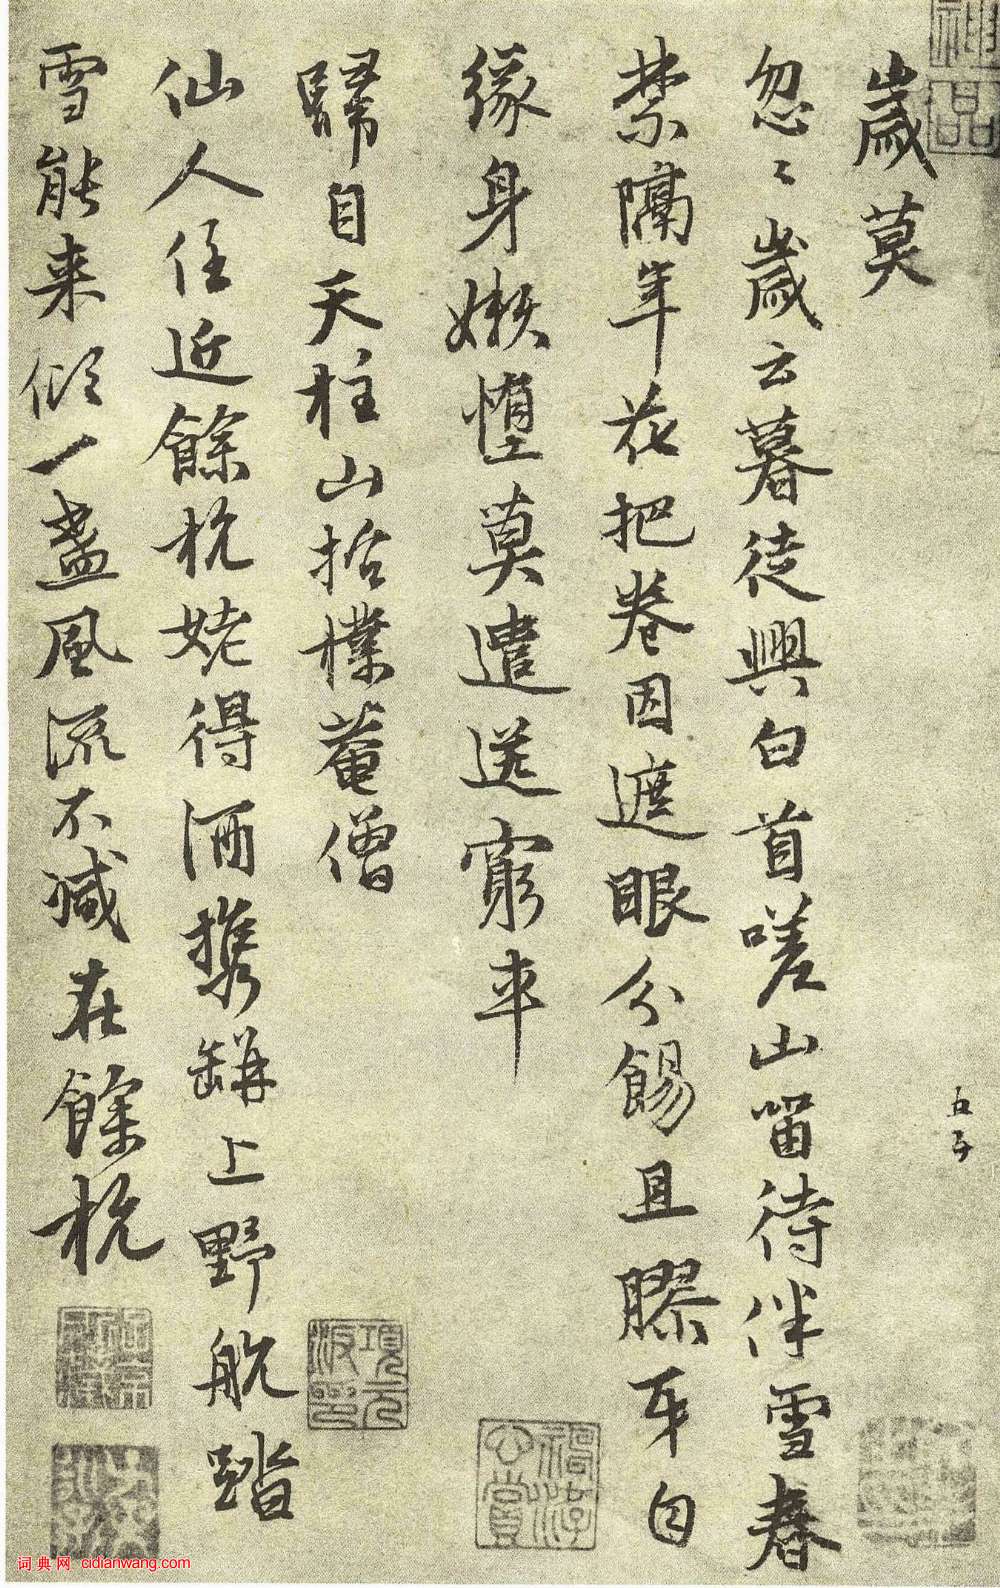 神品
歲莫
忽〻歲云暮徒興白首嗟山留待伴雪春
禁隔年花把卷因遮眼分餳且膠牙自
緣身嬾惰莫遣送窮車
歸自天柱山招樸菴僧
仙人住近餘杭姥得酒携罇上野航踏
雪能来傾一盞風流不减在餘杭
項元汴印
神游心賞
词典网 cidianwang.com